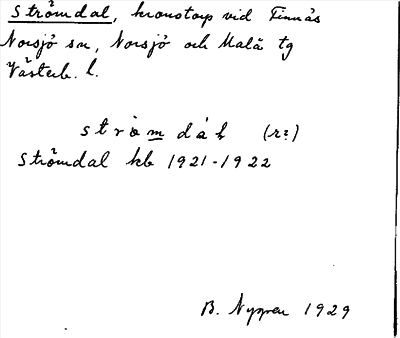 Strömdal, kronotorp vid Finnås
Norsjö sn, Norsjö och Malå tg
Västerb. l.
strömdáh (r?)
Strömdal kb 1921-1922
B. Nyman 1929